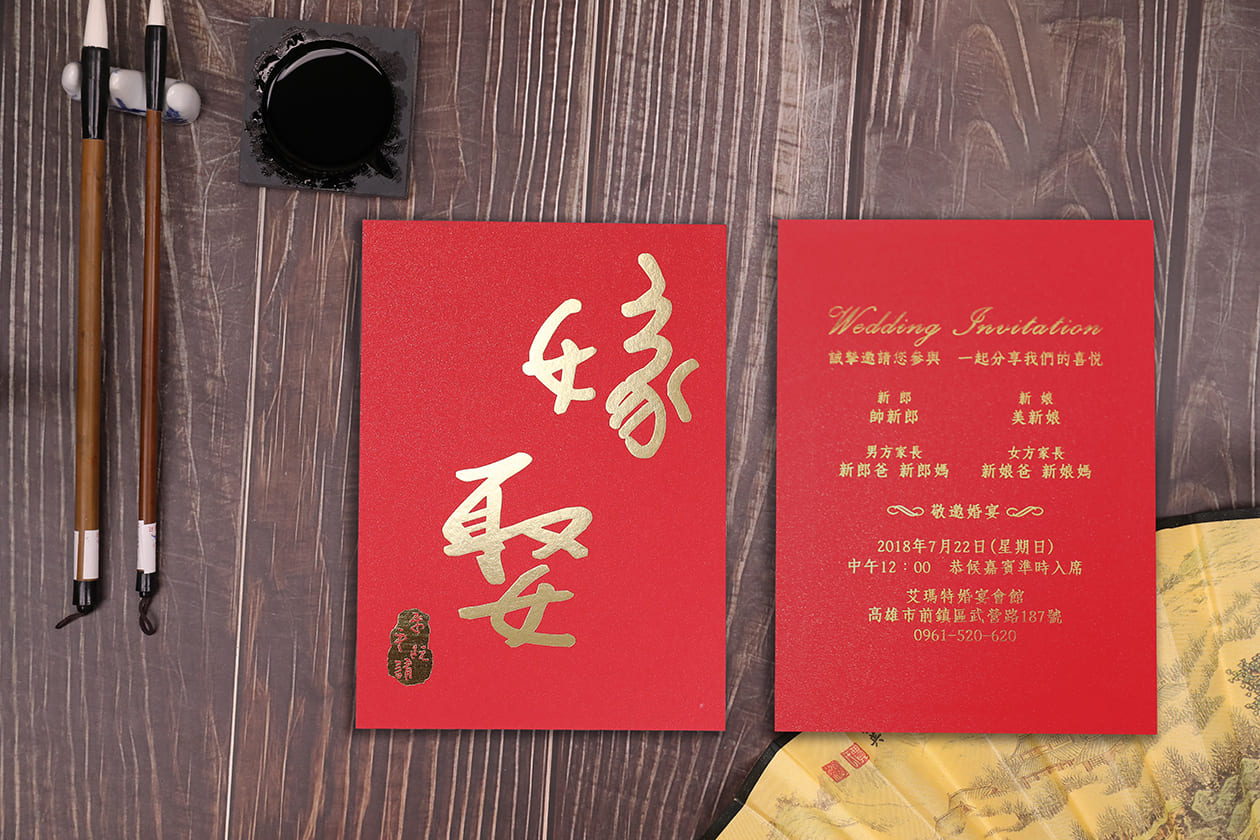 嫁
娶
Wedding Invitation
誠摯邀請您參與 一起分享我們的喜悅
新郎 新娘
帥新郎 美新娘
男方家長 女方家長
新郎爸 新郎媽 新娘爸 新娘媽
敬邀婚宴
2018年7月22日(星期日)
中午12：00 恭候嘉賓準時入席
艾瑪特婚宴會館
高雄市前鎮區武營路187號
0961-520-620